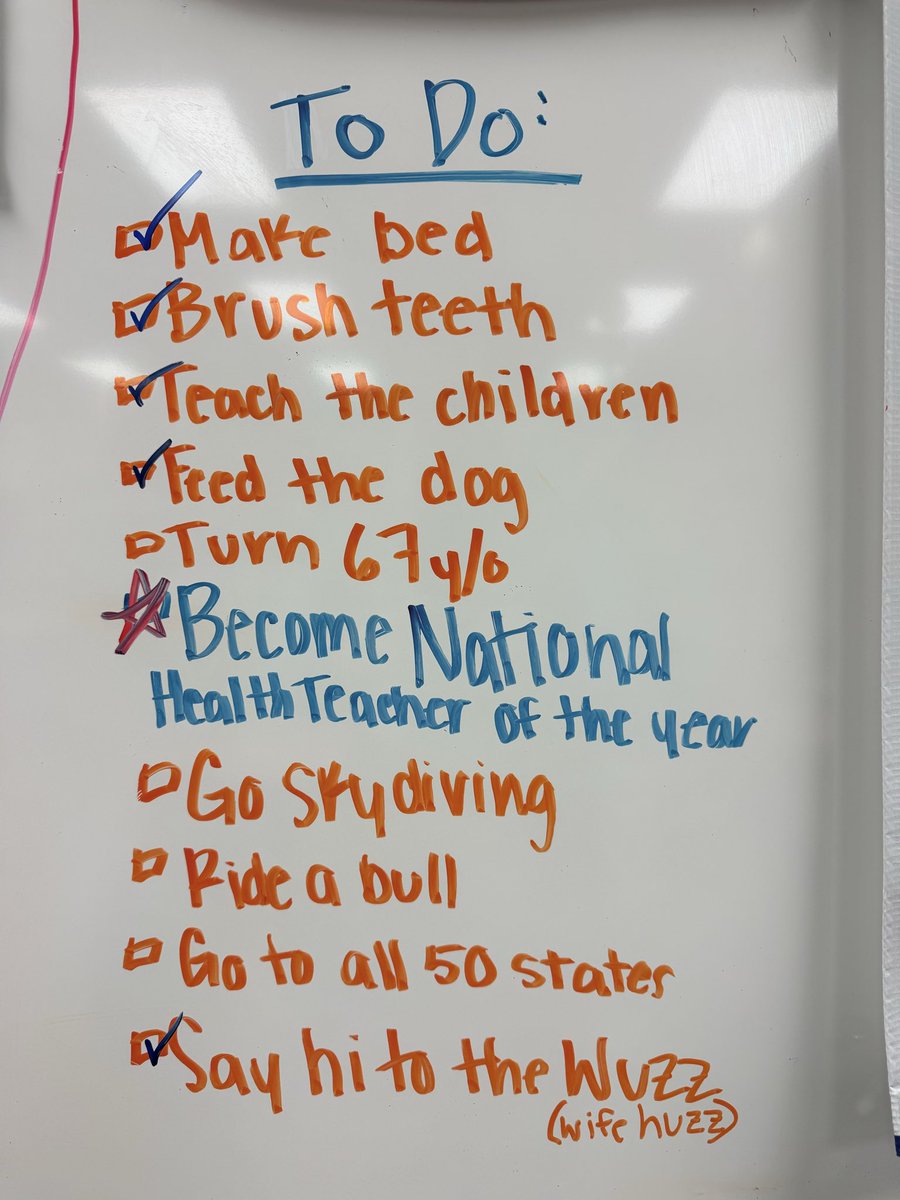 To Do:
Make bed
Brush teeth
Teach the children
Feed the dog
Turn 67 y/o
Become National
Health Teacher of the year
Go skydiving
Ride a bull
Go to all 50 states
Say hi to the Wuzz
(wife huzz)